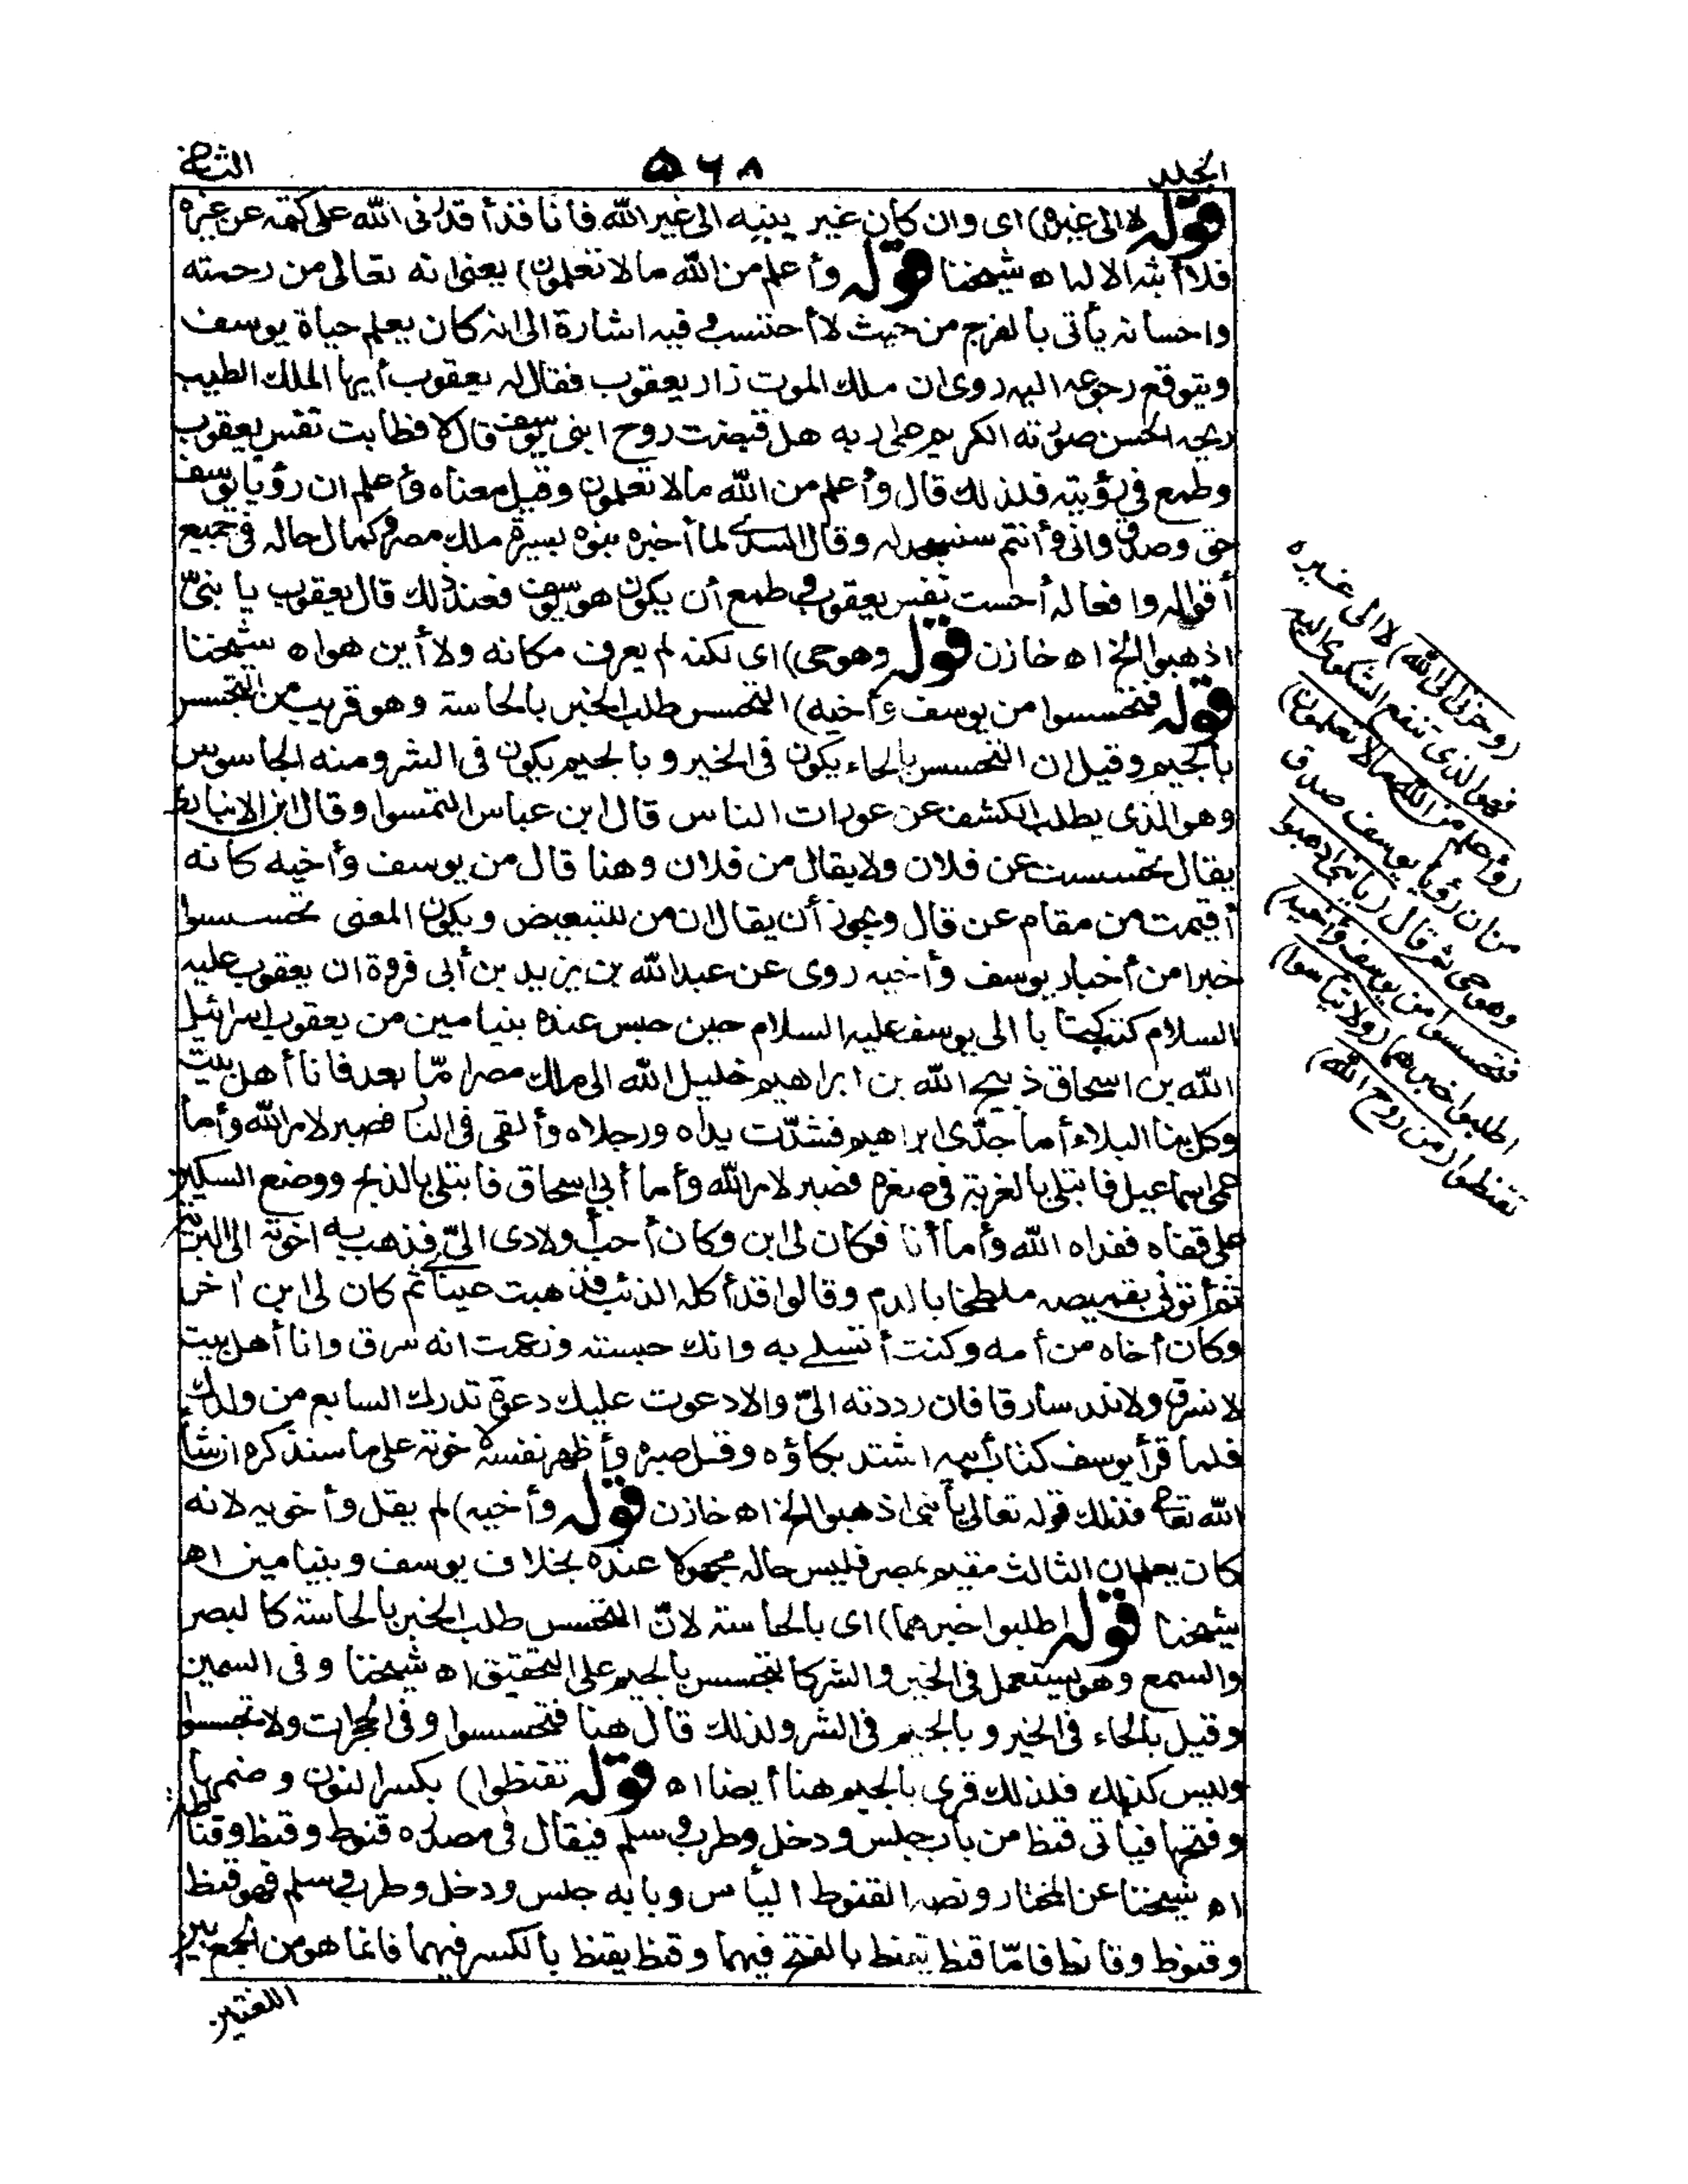 المجلد ٥٦٨ الثانى
قوله لا الى غيره) اى وان كان غير يبثه الى غير الله فأنا قد أقدرنى الله على كتمه عن غيره
فلا أبثه الا له اه شيخنا قوله وأعلم من الله ما لا تعلمون) يعنى انه تعالى من رحمته
واحسانه يأتى بالفرج من حيث لا أحتسب وفيه اشارة الى انه كان يعلم حياة يوسف
ويتوقع رجوعه اليه روى ان ملك الموت زار يعقوب فقال له يعقوب أيها الملك الطيب
ريحه الحسن صورته الكريم على ربه هل قبضت روح ابنى يوسف قال لا فطابت نفس يعقوب
وطمع فى رؤيته فلذلك قال وأعلم من الله ما لا تعلمون وقيل معناه وأعلم ان رؤيا يوسف
حق وصدق وانى وأنتم سنسجد له وقال السدى لما أخبره بنوه بسيرة ملك مصر وكمال حاله فى جميع
أقواله وافعاله أحست نفس يعقوب وطمع أن يكون هو يوسف فعند ذلك قال يعقوب يا بنىّ
اذهبوا الخ اه خازن قوله وهو حى) اى لكنه لم يعرف مكانه ولا أين هو اه شيخنا
قوله فتحسسوا من يوسف وأخيه) التحسس طلب الخبر بالحاسة وهو قريب من التجسس
بالجيم وقيل ان التحسس بالحاء يكون فى الخير وبالجيم يكون فى الشر ومنه الجاسوس
وهو الذى يطلب الكشف عن عورات الناس قال ابن عباس التمسوا وقال ابن الانبارى
يقال تحسست عن فلان ولا يقال من فلان وهنا قال من يوسف وأخيه كانه
أقيمت من مقام عن قال ويجوز أن يقال ان من للتبعيض ويكون المعنى تحسسوا
خبرا من أخبار يوسف وأخيه روى عن عبد الله بن يزيد بن أبى فروة ان يعقوب عليه
السلام كتب كتابا الى يوسف عليه السلام حين حبس عنده بنيامين من يعقوب اسرائيل
الله بن اسحاق ذبيح الله بن ابراهيم خليل الله الى ملك مصر امّا بعد فانا أهل بيت
وكل بنا البلاء أما جدّى ابراهيم فشدّت يداه ورجلاه وألقى فى النار فصبر لامر الله وأما
عمى اسماعيل فابتلى بالغربة فى صغره فصبر لامر الله وأما أبى اسحاق فابتلى بالذبح ووضع السكين
على قفاه ففداه الله وأما أنا فكان لى ابن وكان أحب أولادى الىّ فذهب به اخوته الى البرية
ثم أتونى بقميصه ملطخا بالدم وقالوا قد أكله الذئب فذهبت عيناى ثم كان لى ابن آخر
وكان أخاه من أمه وكنت أتسلى به وانك حبسته وزعمت انه سرق وانا أهل بيت
لا نسرق ولا نلد سارقا فان رددته الىّ والا دعوت عليك دعوة تدرك السابع من ولدك
فلما قرأ يوسف كتاب أبيه اشتد بكاؤه وقل صبره وأظهر نفسه لاخوته على ما سنذكره ان شاء
الله تعالى فذلك قوله تعالى يا بنى اذهبوا الخ اه خازن قوله وأخيه) لم يقل وأخويه لانه
كان يعلم ان الثالث مقيم بمصر فليس حاله مجهولا عنده بخلاف يوسف وبنيامين اه
شيخنا قوله اطلبوا خبرهما) اى بالحاسة لانّ التحسس طلب الخبر بالحاسة كالبصر
والسمع وهو يستعمل فى الخير والشر كالتجسس بالجيم على التحقيق اه شيخنا وفى السمين
وقيل بالحاء فى الخير وبالجيم فى الشر ولذلك قال هنا فتحسسوا وفى الحجرات ولا تجسسوا
وليس كذلك فلذلك قرى بالجيم هنا أيضا اه قوله تقنطوا) بكسر النون وضمها
وفتحها فيأتى قنط من باب جلس ودخل وطرب وسلم فيقال فى مصدره قنوط وقنط وقناطة
اه شيخنا عن المختار ونصه القنوط اليأس وبابه جلس ودخل وطرب وسلم فهو قنط
وقنوط وقانط فامّا قنط يقنط بالفتح فيهما وقنط يقنط بالكسر فيهما فانما هو من الجمع بين
اللغتين
(وحزنى الى الله) لا الى غيره
فهو الذى تنفع الشكوى اليه
(وأعلم من الله ما لا تعلمون)
من ان رؤيا يوسف صدق
وهو حى ثم قال (يا بنى اذهبوا
فتحسسوا من يوسف وأخيه)
اطلبوا خبرهما (ولا تيأسوا)
تقنطوا (من روح الله)